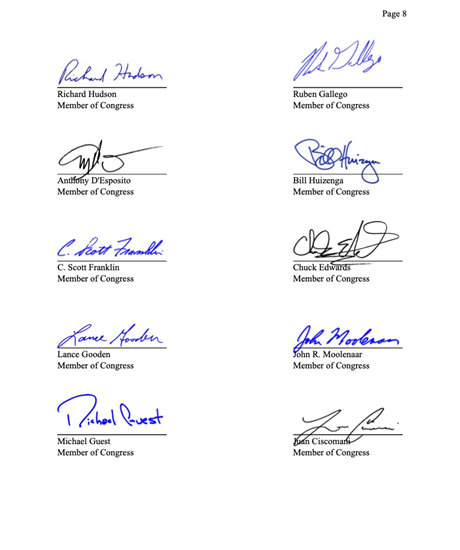 Page 8
Richard Hudson
Richard Hudson
Member of Congress
Ruben Gallego
Member of Congress
Anthony D'Esposito
Member of Congress
Bill Huizenga
Bill Huizenga
Member of Congress
C. Scott Franklin
C. Scott Franklin
Member of Congress
Chuck Edwards
Member of Congress
Lance Gooden
Lance Gooden
Member of Congress
John Moolenaar
John R. Moolenaar
Member of Congress
Michael Guest
Michael Guest
Member of Congress
Juan Ciscomani
Member of Congress